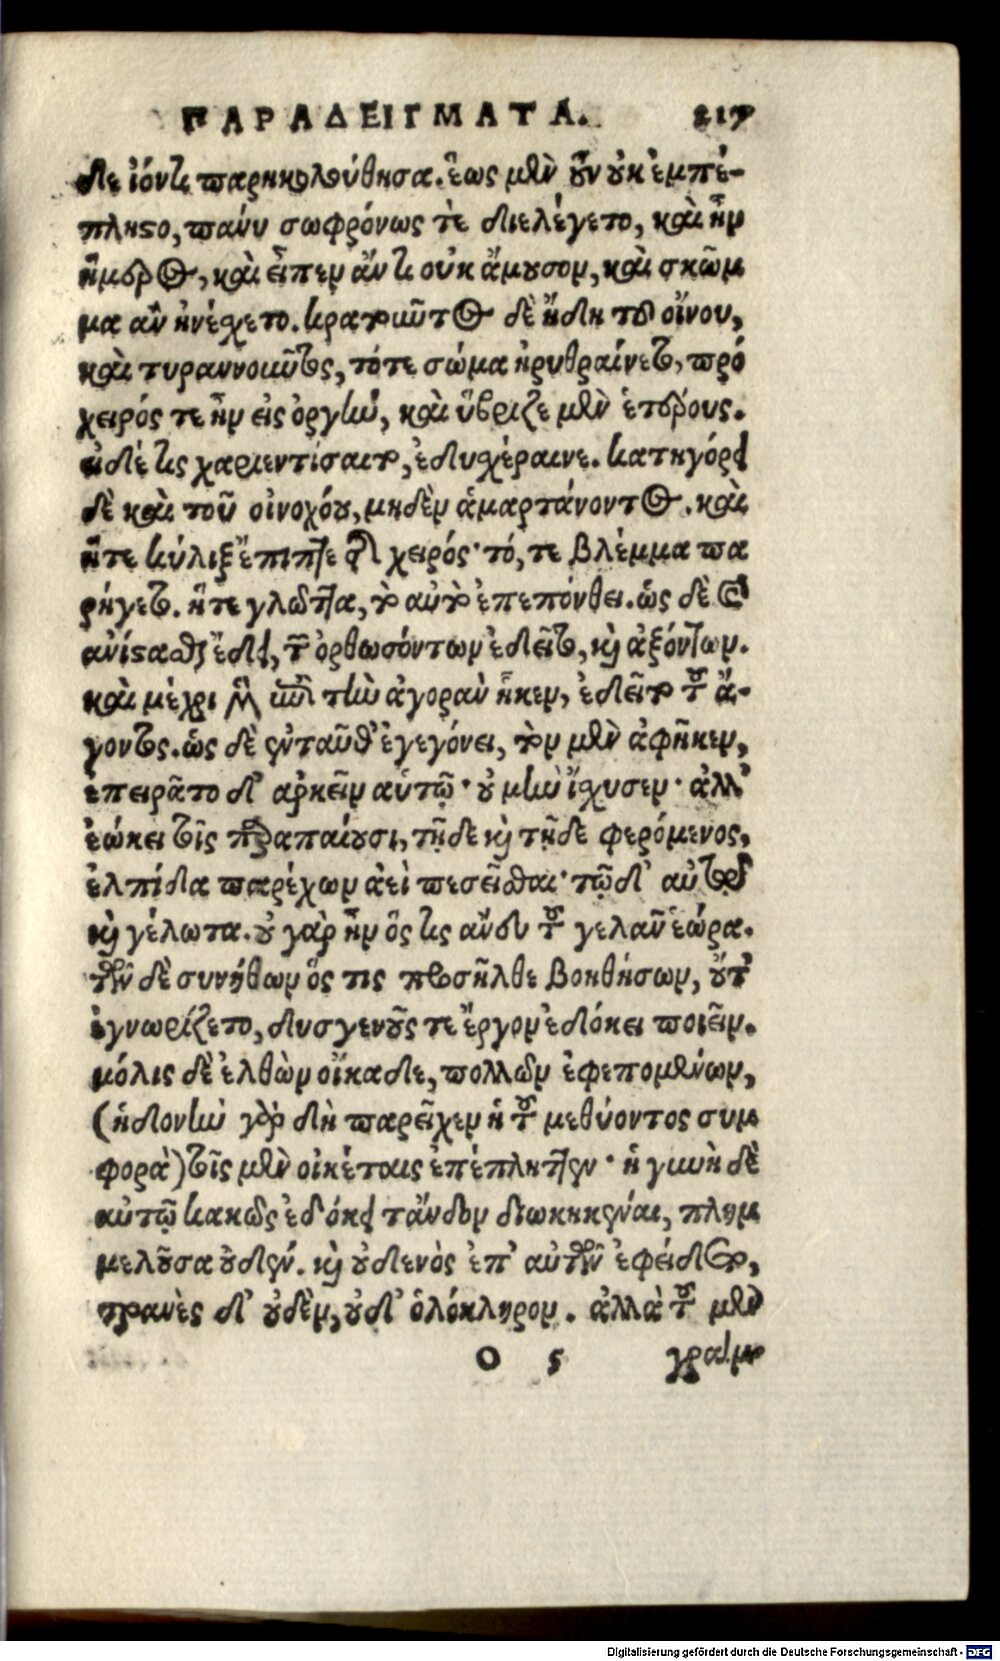 ΠΑΡΑΔΕΙΓΜΑΤΑ. 217
δε ἰόντι παρηκολούθησα. ἕως μὲν οὖν οὐκ ἐμπέ-
πληστο, πάνυ σωφρόνως τὲ διελέγετο, καὶ ἦν
ἥμερος, καὶ εἶπεν ἄν τι οὐκ ἄμουσον, καὶ σκῶμ
μα ἂν ἠνέχετο. κρατοῦντος δὲ ἤδη τοῦ οἴνου,
καὶ τυραννοῦντος, τότε σώμα ἠρυθραίνετο, πρό
χειρός τε ἦν εἰς ὀργὴν, καὶ ὕβριζε μὲν ἑταίρους.
εἰ δέ τις χαριεντίσαιτο, ἐδυχέραινε. κατηγόρει
δὲ καὶ τοῦ οἰνοχόου, μηδὲν ἁμαρτάνοντος. καὶ
ἥτε κύλιξ ἔπιπτε τῆς χειρός· τό, τε βλέμμα πα
ρήγετο. ἥτε γλῶττα, τὸ αὐτὸ ἐπεπόνθει. ὡς δὲ
ἀνίστασθαι ἔδει, τῶν ὀρθωσόντων ἐδεῖτο, καὶ ἀξόντων.
καὶ μέχρι μὲν ἐπὶ τὴν ἀγορὰν ἧκεν, ἐδεῖτο τοῦ ἄ-
γοντος. ὡς δὲ ἐνταῦθ' ἐγεγόνει, τὸν μὲν ἀφῆκεν,
ἐπειρᾶτο δ' ἀρκεῖν αὑτῷ· οὐ μὴν ἴχυσεν· ἀλλ'
ἐῴκει τοῖς παραπαίουσι, τῇδε καὶ τῇδε φερόμενος,
ἐλπίδα παρέχων ἀεὶ πεσεῖσθαι· τῷ δ' αὐτῷ
καὶ γέλωτα. οὐ γὰρ ἦν ὅς τις ἄνευ τοῦ γελᾶν ἑώρα.
τῶν δὲ συνήθων ὅς τις προσῆλθε βοηθήσων, οὔτ'
ἐγνωρίζετο, δυσγενοῦς τε ἔργον ἐδόκει ποιεῖν.
μόλις δὲ ἐλθὼν οἴκαδε, πολλῶν ἐφεπομένων,
(ἡδονὴν γὰρ δὴ παρεῖχεν ἡ τοῦ μεθύοντος συμ
φορὰ) τοῖς μὲν οἰκέταις ἐπέπληττεν· ἡ γυνὴ δὲ
αὐτῷ κακῶς ἐδόκει τἄνδον διῳκηκέναι, πλημ
μελοῦσα οὐδέν. καὶ οὐδενὸς ἐπ' αὐτῶν ἐφείδετο,
τρανὲς δ' οὐδὲν, οὐδ' ὁλόκληρον. ἀλλὰ τοῦ μὲν
Ο 5 γράμ
Digitalisierung gefördert durch die Deutsche Forschungsgemeinschaft - DFG